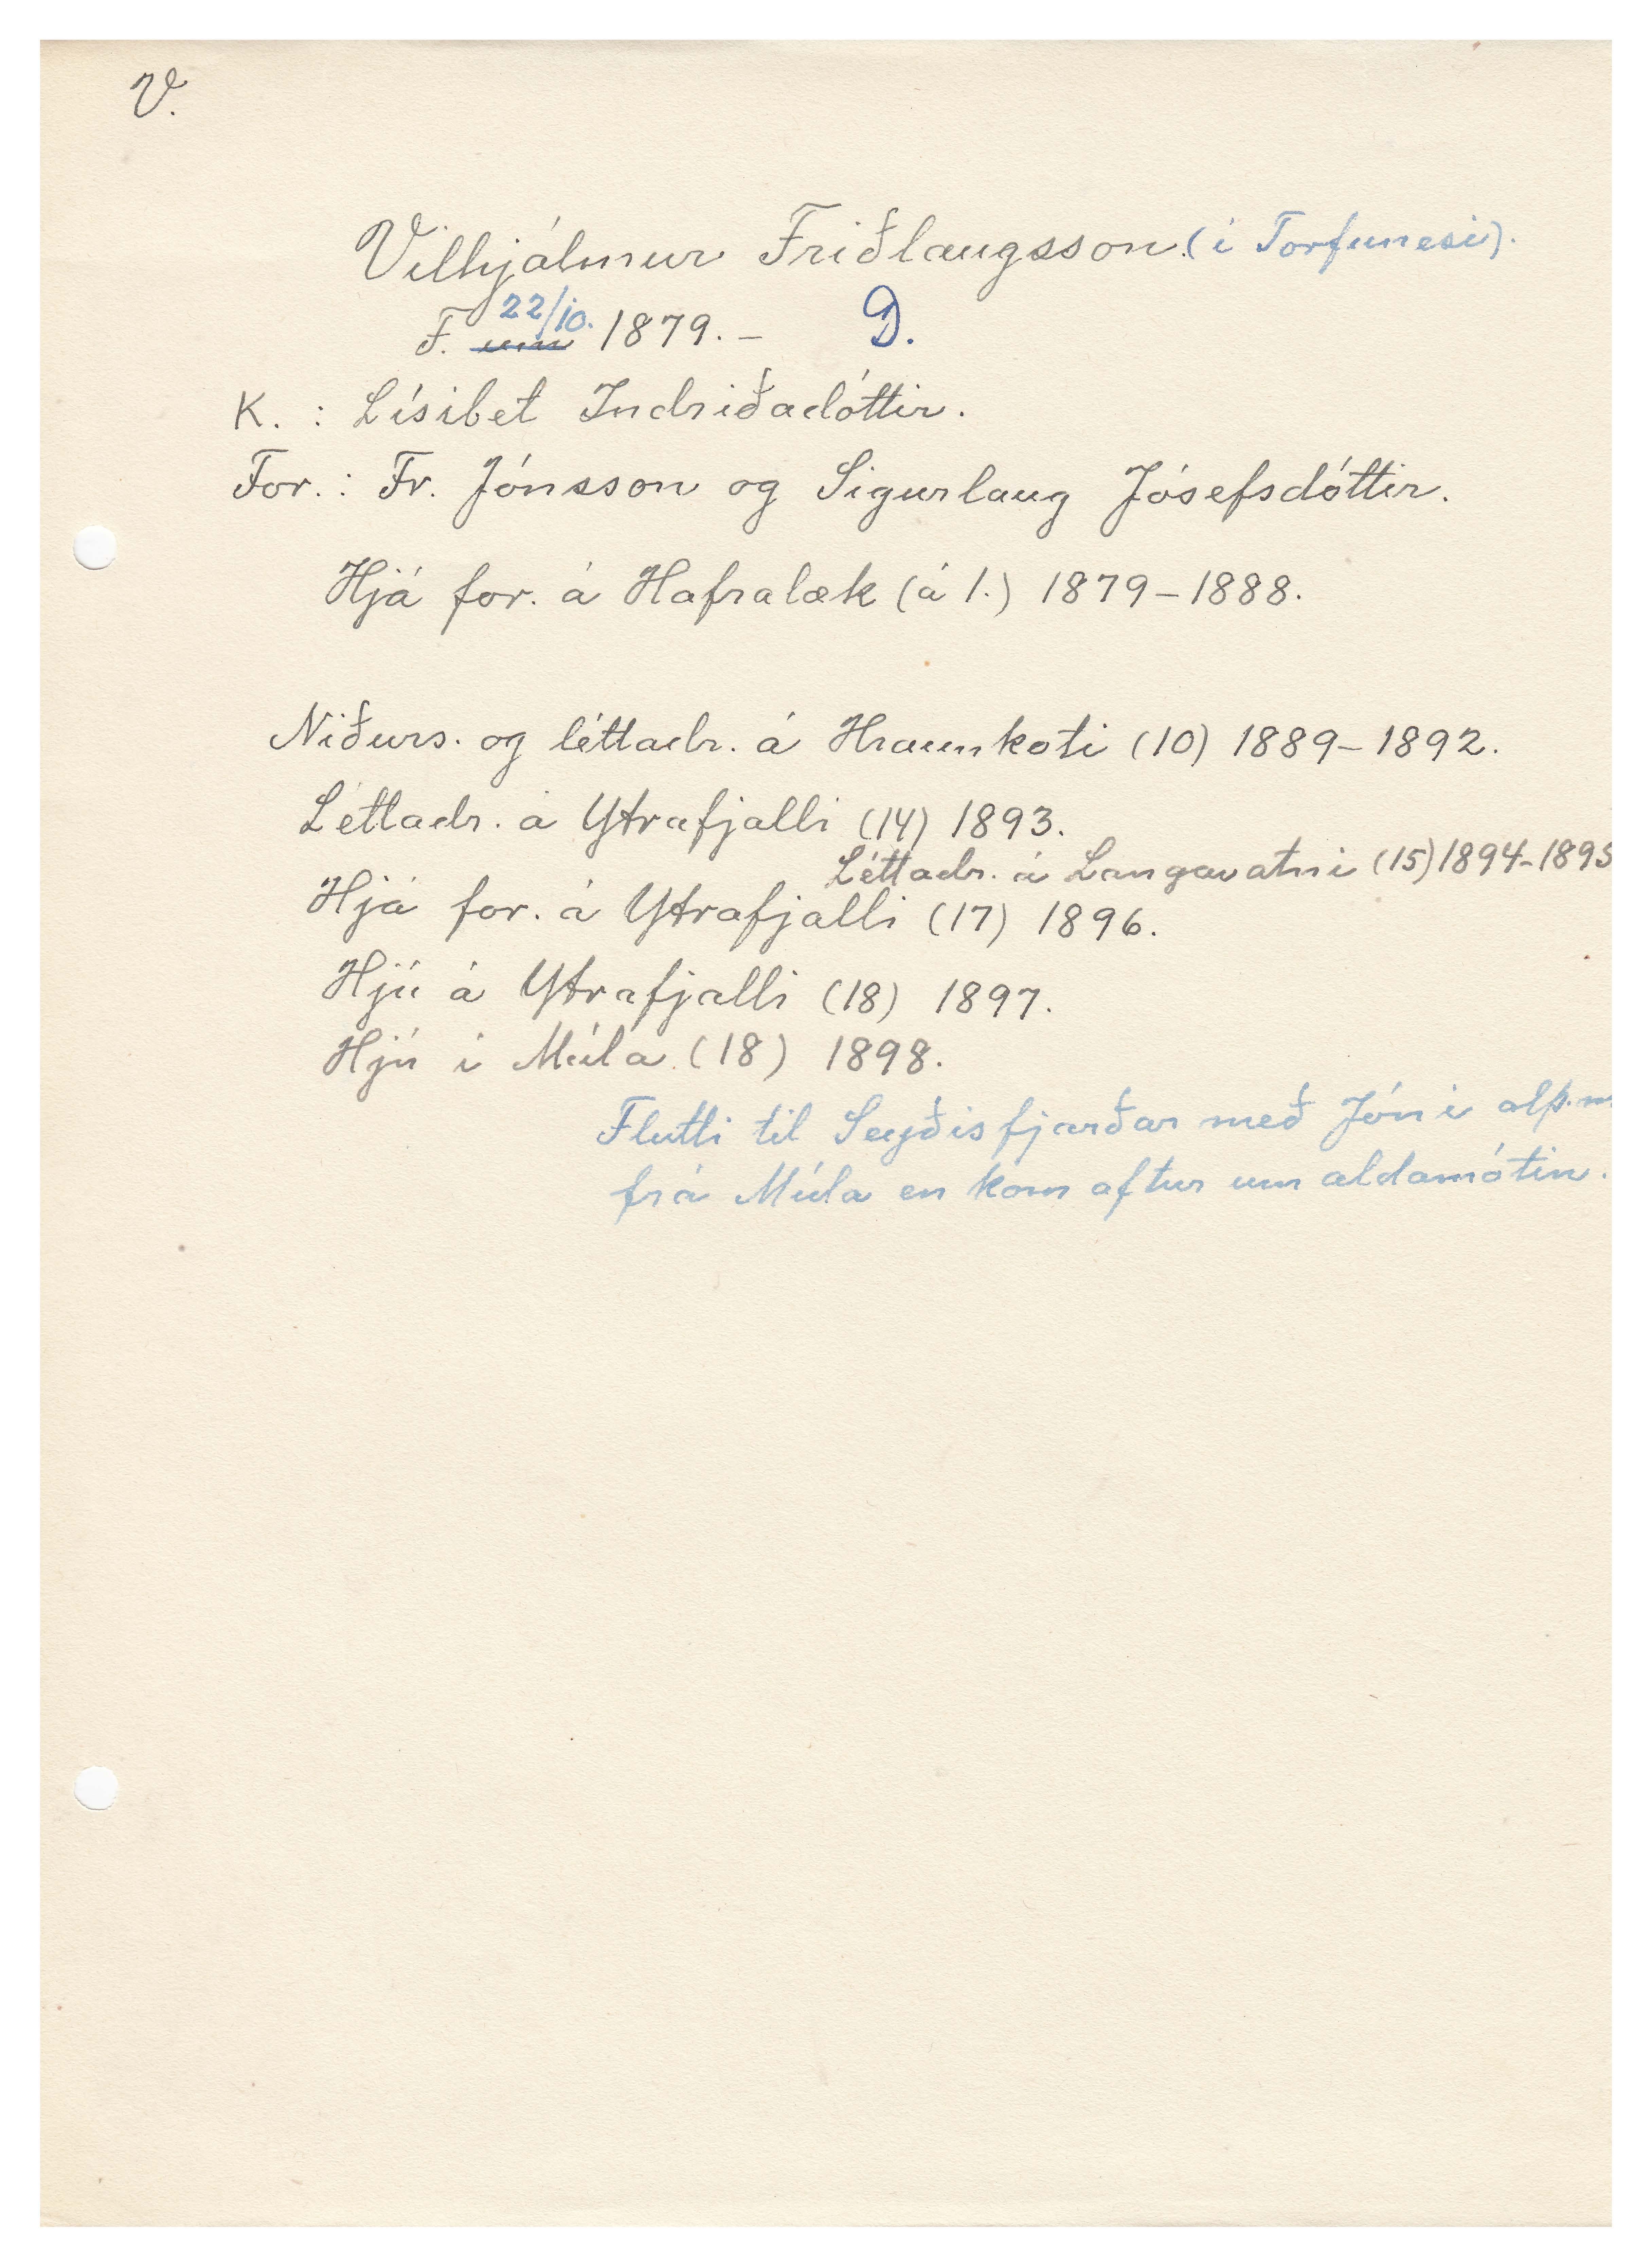 V.
Vilhjálmur Friðlaugsson. (í Torfunesi).
F. um 22/10. 1879. – D.
K. : Lísibet Indriðadóttir.
For. : Fr. Jónsson og Sigurlaug Jósefsdóttir.
Hjá for. á Hafralæk (á 1.) 1879–1888.
Niðurs. og léttadr. á Hraunkoti (10) 1889–1892.
Léttadr. á Ytrafjalli (14) 1893.
Léttadr. á Langavatni (15) 1894–1895
Hjá for. á Ytrafjalli (17) 1896.
Hjú á Ytrafjalli (18) 1897.
Hjú í Múla (18) 1898.
Flutti til Seyðisfjarðar með Jóni alþ.m
frá Múla en kom aftur um aldamótin.